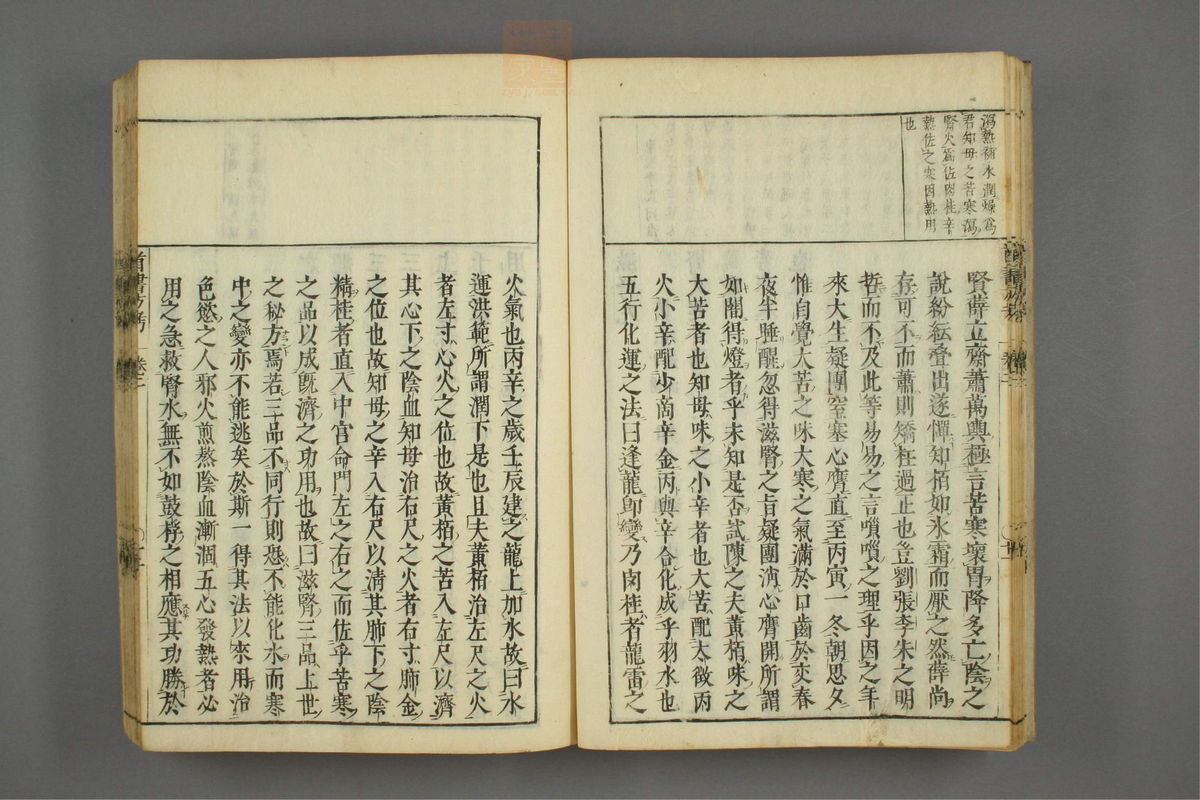 瀉熱補水潤燥爲
君知母之苦寒瀉
腎火爲佐肉桂辛
熱佐之寒因熱用
也
賢薛立齋蕭萬輿極言苦寒壞胃降多亡陰之
說紛紜疊出遂憚知栢如氷霜而厭之然薛尚
存可不而蕭則矯枉過正也豈劉張李朱之明
哲而不及此等易易之言嗩嗩之理乎因之年
來大生疑團窒塞心膺直至丙寅一冬朝思夕
惟自覺大苦之味大寒之氣滿於口齒於交春
夜半睡醒忽得滋腎之旨疑團消心膺開所謂
如闇得燈者乎未知是否試陳之夫黃栢味之
大苦者也知母味之小辛者也大苦配太徵丙
火小辛配少商辛金丙與辛合化成乎羽水也
五行化運之法曰逢龍卽變乃肉桂者龍雷之
火氣也丙辛之歲壬辰建之龍上加水故曰水
運洪範所謂潤下是也且夫黃栢治左尺之火
者左寸心火之位也故黃栢之苦入左尺以濟
其心下之陰血知母治右尺之火者右寸肺金
之位也故知母之辛入右尺以淸其肺下之陰
精桂者直入中宮命門左之右之而佐乎苦寒
之品以成旣濟之功用也故曰滋腎三品上世
之秘方焉若三品不同行則恐不能化水而寒
中之變亦不能逃矣於斯一得其法以來用治
色慾之人邪火煎熬陰血漸涸五心發熱者必
用之急救腎水無不如鼓桴之相應其功勝於
卷三